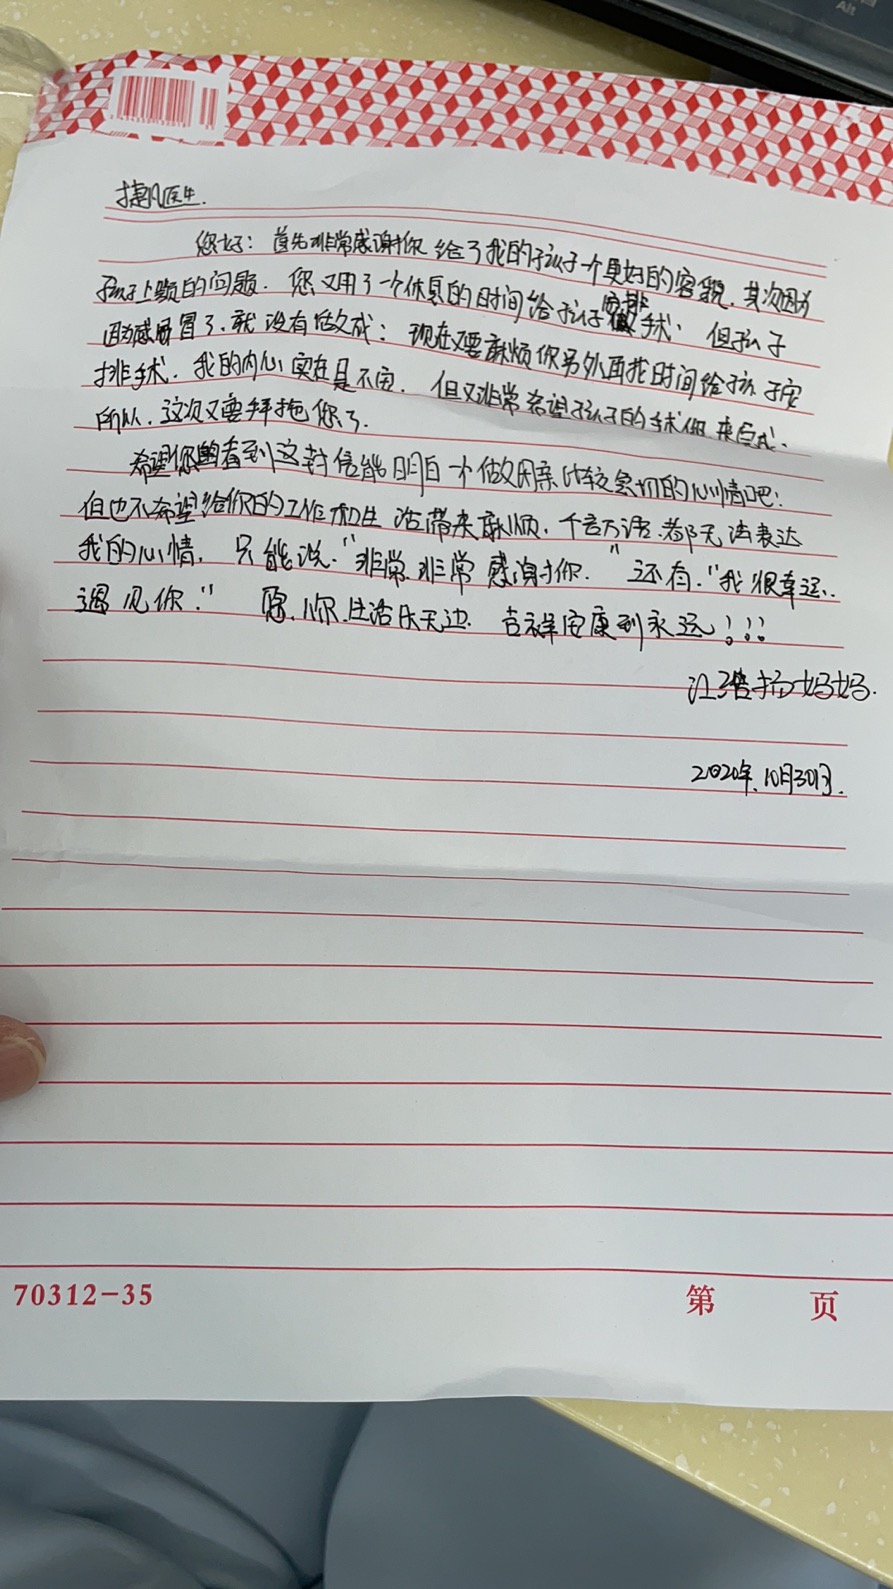 Alt
医生.
您好：首先非常感谢你给了我的孩子一个更好的容貌.其次因为
孩子上颚的问题.您又用了一个休息的时间给孩子安排手术.但孩子
因为感冒了.就没有做成：现在又要麻烦你另外再找时间给孩子安
排手术.我的内心实在是不安.但又非常希望孩子的手术你来完成.
所以.这次又要拜托您了.
希望您看到这封信能明白一个做母亲比较急切的心情吧！
但也不希望给你的工作和生活带来麻烦.千言万语.都无法表达
我的心情.只能说."非常.非常感谢你."还有."我很幸运.
遇见你."愿.你.生活乐无边.吉祥安康到永远！!!
江 扬妈妈.
2020年.10月30日.
70312-35
第 页